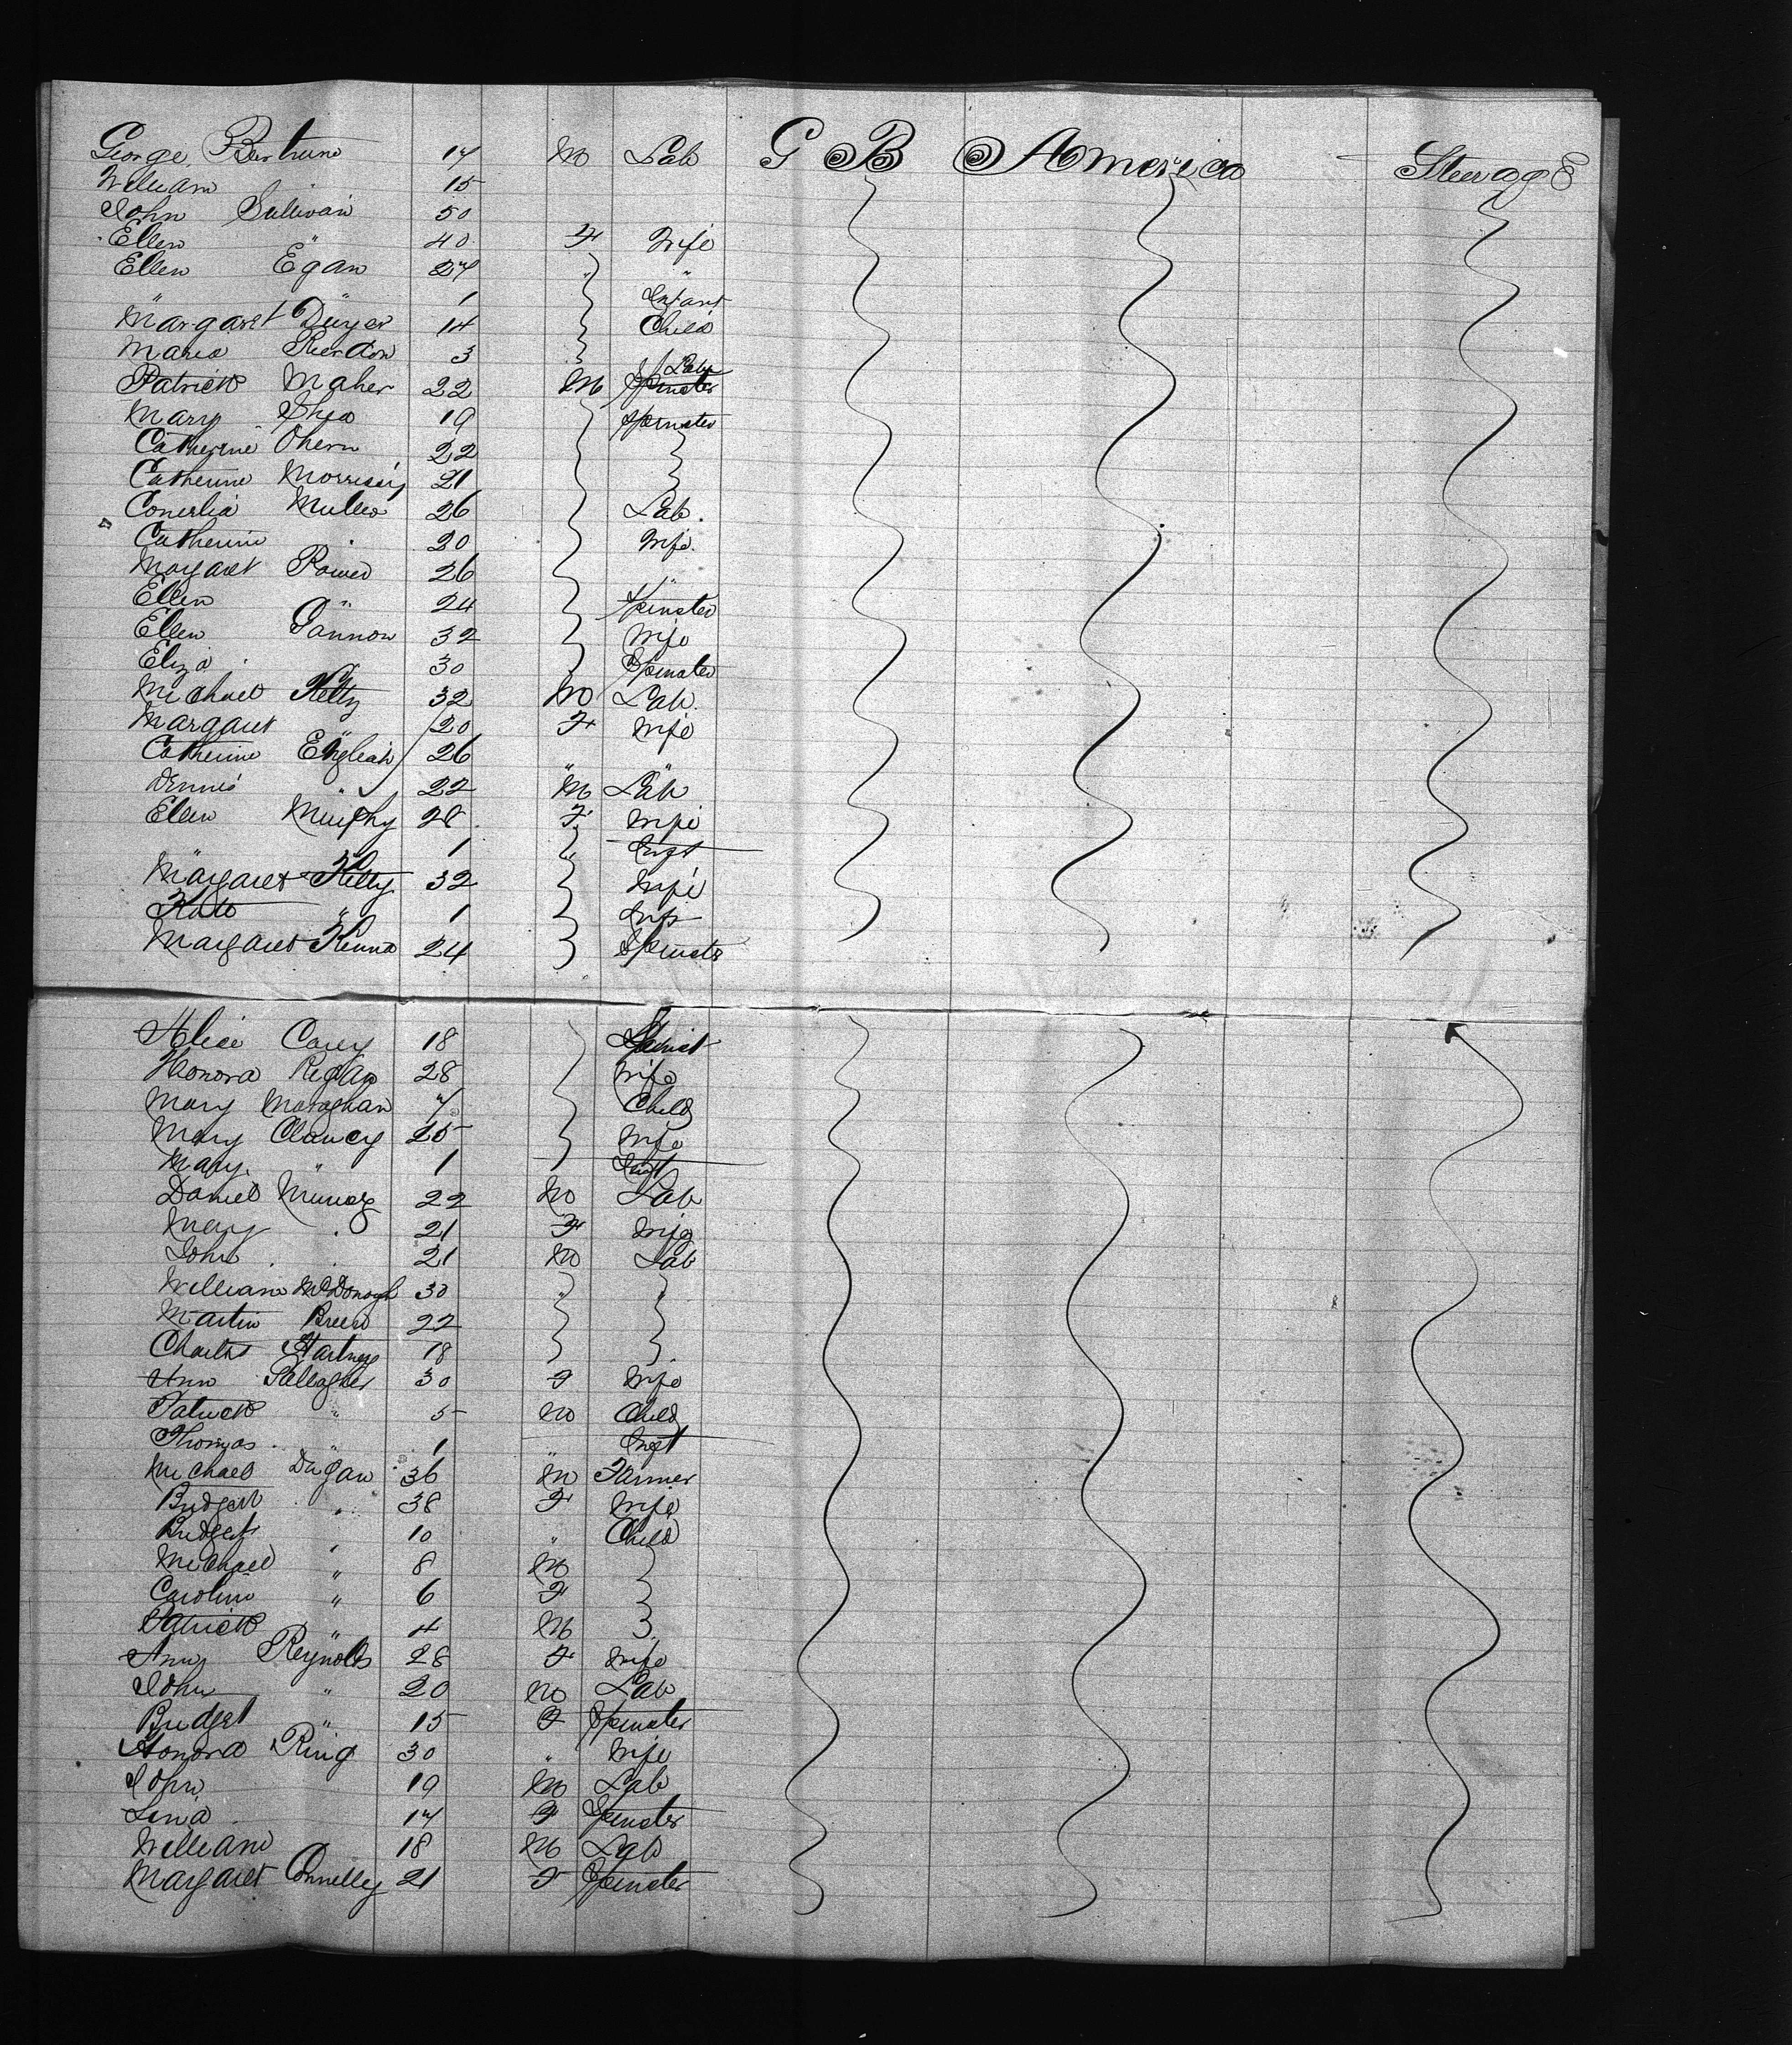 George Bertrune 17 M Lab G B America Steerage
William 15
John Sullivan 50
Ellen " 40 F Wife
Ellen Egan 27 " "
" " 1 Infant
Margaret Dwyer 14 Child
Maria Reardon 3
Patrick Maher 22 M Spinster Lab
Mary Shea 19 Spinster
Catherine Ohern 22
Catherine Morrissy 21
Conerlia Mullen 26 Lab.
Catherine . 20 Wife.
Margaret Power 26 "
Ellen " 24 Spinster
Ellen Gannon 32 Wife
Eliza . 30 Spinster
Michael Kelly 32 M Lab.
Margaret " 20 F Wife
Catherine English 26 " "
Dennis " 22 M Lab
Ellen Murphy 28 F Wife
" 1 " Inft
Margaret Kelly 32 Wife
Kate " 1 Inft
Margaret Kenna 24 Spinster
Alice Carey 18 Spinst
Honora Regan 28 Wife
Mary Monaghan 7 Child
Mary Clancy 25 Wife
Mary. " 1 Inft
Daniel Murray 22 M Lab
Mary . 21 F Wife
John . . 21 M Lab
William McDonogh 30 " "
Martin Breen 22
Charles Hartney 18
Ann Gallagher 30 F Wife
Patrick " 5 M Child
Thomas " 1 " Inft
Michael Dugan 36 M Farmer
Bridget " 38 F Wife
Bridget " 10 " Child
Michael " 8 M
Caroline " 6 F
Patrick " 4 M
Anny Reynolds 28 F Wife
John " 20 M Lab
Bridget " 15 F Spinster
Honora Ring 30 " Wife
John 19 M Lab
Lena 17 F Spinster
William 18 M Lab
Margaret Connelly 21 F Spinster